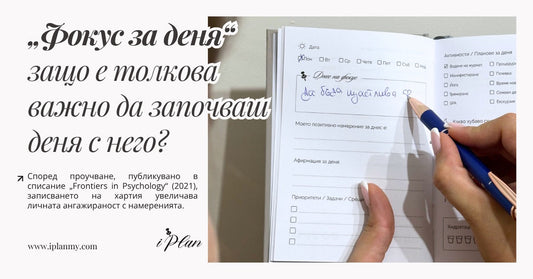 „Фокус за деня“
защо е толкова
важно да започваш
деня с него?
Според проучване, публикувано в
списание „Frontiers in Psychology“ (2021),
записването на хартия увеличава
личната ангажираност с намеренията.
www.iplanmy.com
iPlan
Дата
Пон Вт Ср Четв Пет Съб Нед
Днес на фокус
Да бъда щастлива
Моето позитивно намерение за днес е:
Афирмация за деня
Приоритети / Задачи / Срещи
Активности / Планове за деня
Водене на журнал
Манифестиране
Йога
Трениране
СПА
Процедури
Почивка
Време
Екскурзия
Какво хубаво
Хидратация